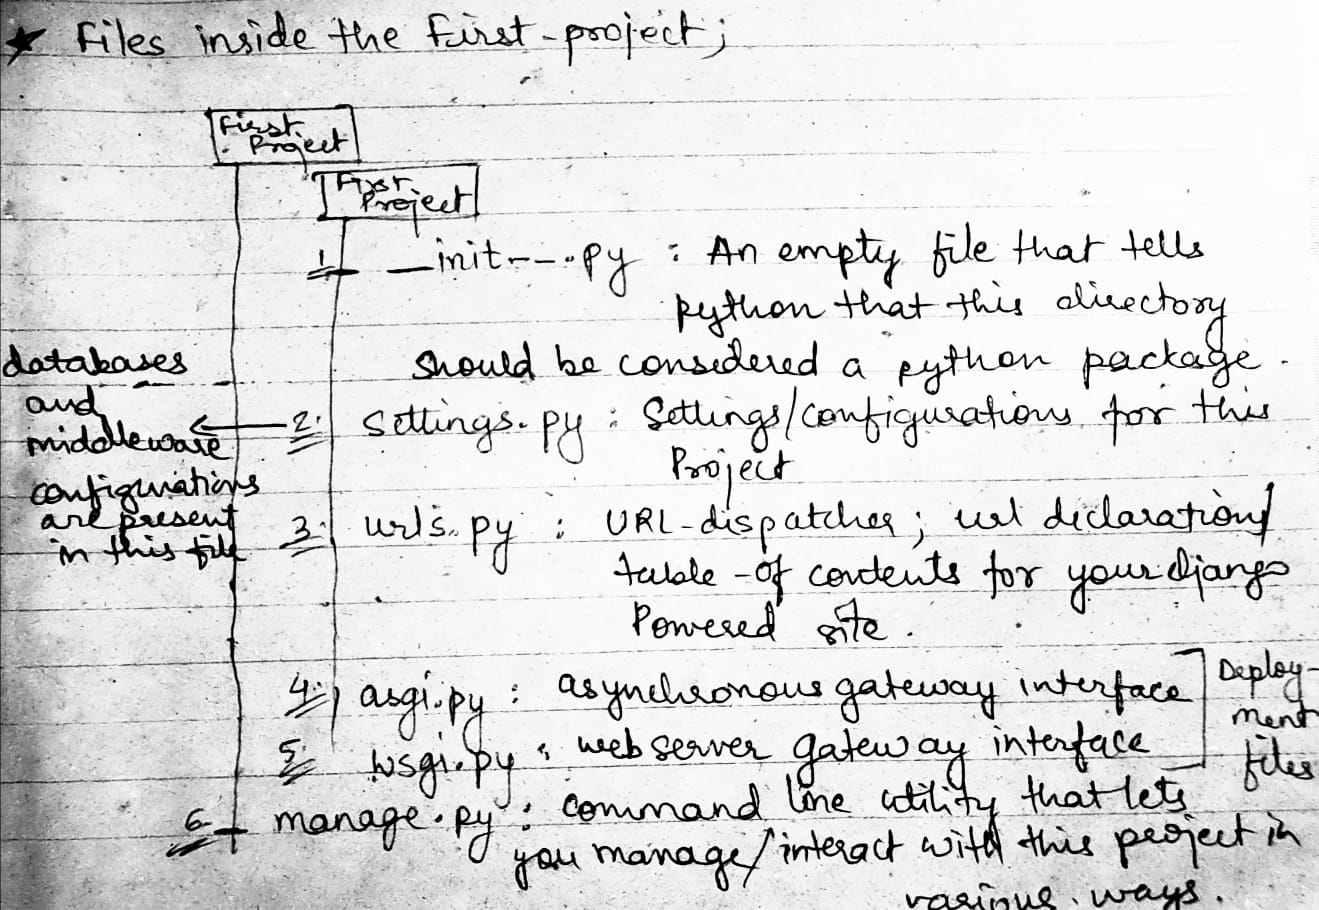 ★ Files inside the First-project;
First
Project
First
Project
1 __init__.py : An empty file that tells
python that this directory
should be considered a python package.
databases
and
middleware
configurations
are present
in this file
2. settings.py : Settings/configurations for this
Project
3. urls.py : URL-dispatcher; url declaration/
table-of contents for your django
Powered site.
4. asgi.py : asynchronous gateway interface
5. wsgi.py : web server gateway interface
Deploy-
ment
files
6. manage.py : command line utility that lets
you manage/interact with this project in
various ways.